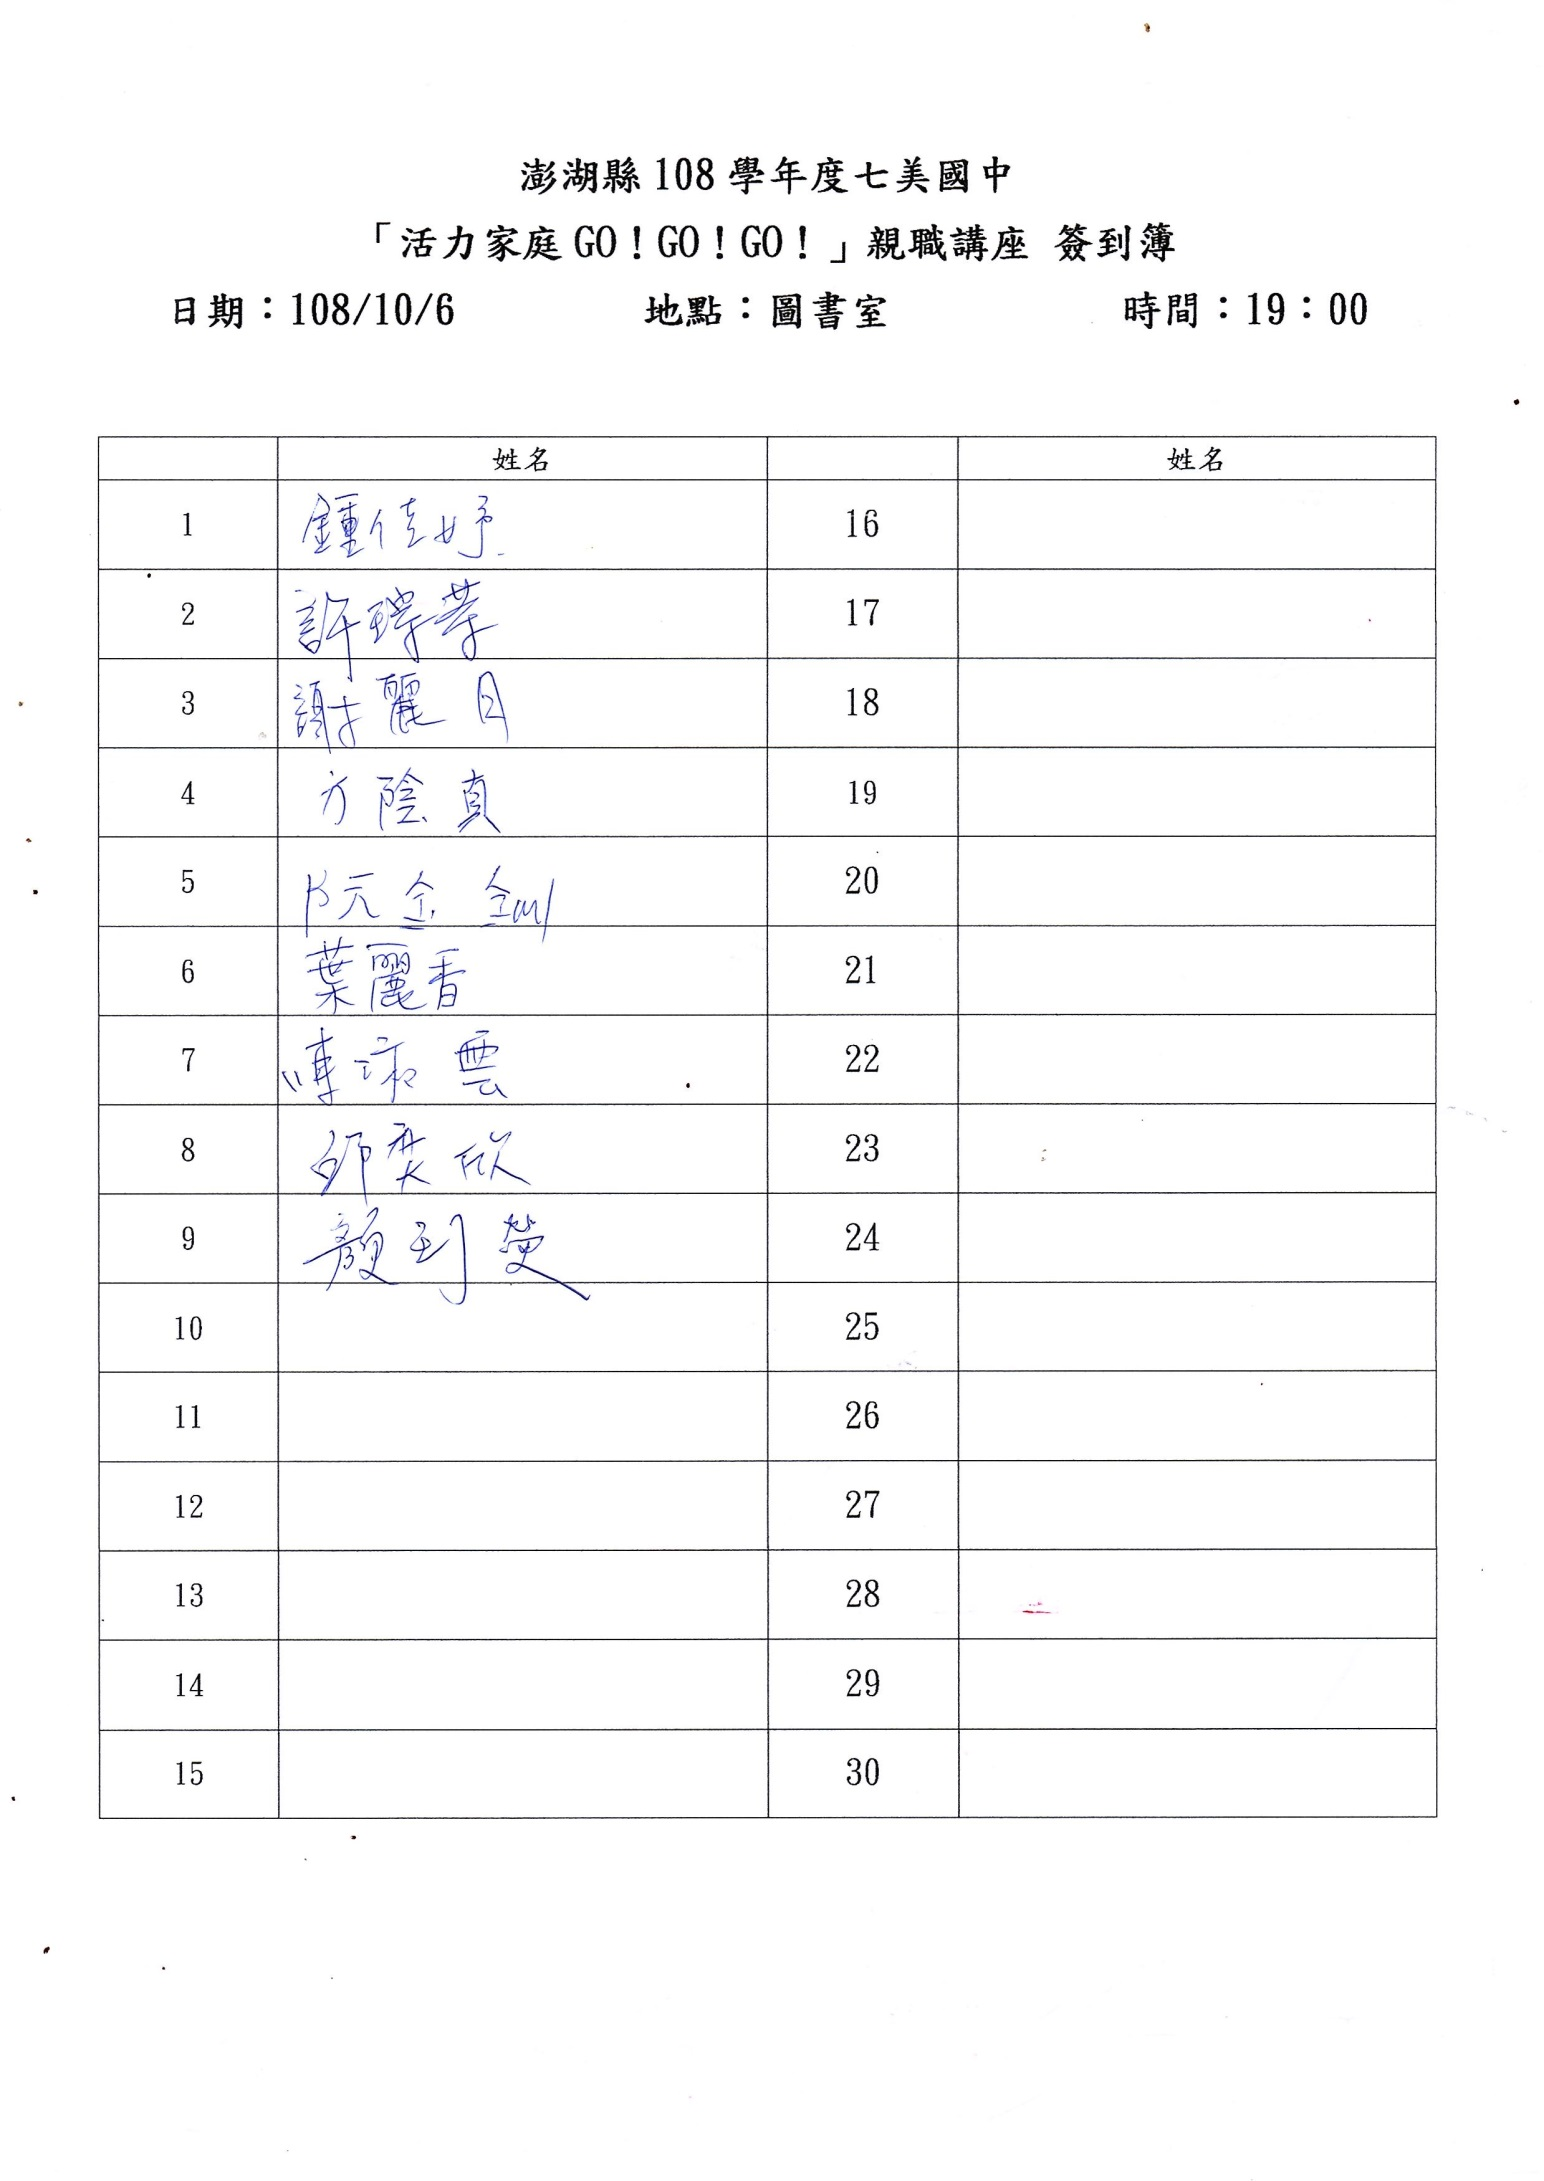 澎湖縣 108 學年度七美國中
「活力家庭 GO！GO！GO！」親職講座 簽到簿
日期：108/10/6 地點：圖書室 時間：19：00
姓名 姓名
1 鍾佳妤 16
2 許 17
3 謝麗月 18
4 方陰真 19
5 阮金釧 20
6 葉麗香 21
7 陳淑雲 22
8 23
9 顏到 24
10 25
11 26
12 27
13 28
14 29
15 30